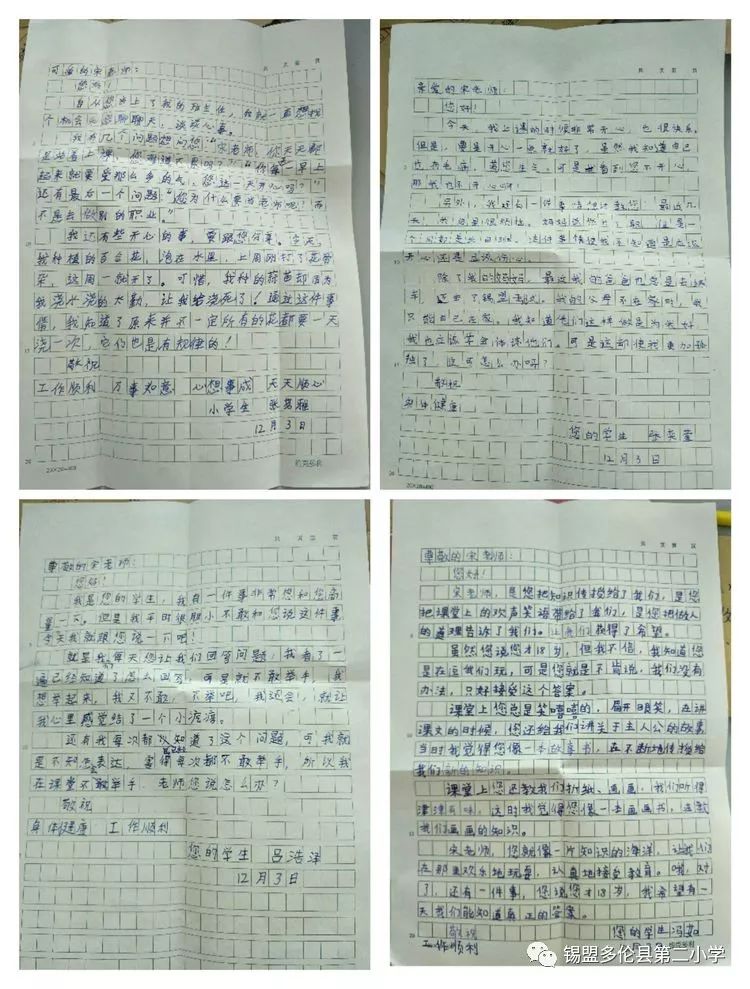 共 页 第 页
可爱的宋老师：
您好！
自从您当上了我的班主任，我就一直想找
个机会与您聊聊天，谈谈心事。
我有几个问题想问您“宋老师，你天天都
站着上课，您难道不累吗？”“你每一早上
起来就要受那么多的气，您这一天开心吗？”
还有最后一个问题：“您为什么要当老师呢！而
不是去做别的职业。”
我还有些开心的事，要跟您分享。
我种植的百合花，泡在水里，上周刚打了花骨
朵，这周一就开了。可惜，我种的蒜苗却因为
我浇水浇的太勤，让我给浇死了！通过这件事
情，我知道了原来并不一定所有的花都要一天
浇一次，它们也是有规律的！
敬祝
工作顺利 万事如意 心想事成 天天顺心
小学生 张 雅
12月3日
20
20X20=400
共 页 第 页
亲爱的宋老师：
您好！
今天，我上课的时候非常开心，也很快乐。
但是，要是开心一些就好了，虽然我知道自己
也有毛病，惹您生气。可是 看到您不开心，
那我也不开心啊！
另外，我还有一件事情但 您：最近几
天， 妈妈 但是一
个 这件事情 我不知道是应该
开心还是应该伤心。
除了我的妈妈，最近我的爸爸也总是去
车，还去了锡盟 我的父母不在家时，我
只能自己在家。我知道他们这样做是为我好
我也应该学会体谅他们。可是这却使我更加孤
独了，这可怎么办呀？
敬祝
身体健康
您的学生 张奕萱
12月3日
20
20X20=400
共 页 第 页
尊敬的宋老师：
您好！
我是您的学生，我有一件事非常想和您商
量一下。但是我平时很胆小不敢和您说这件事
今天我就跟您说一下吧！
就是我每天您让我们回答问题，我看了一
遍已经知道了怎么回答，可是就不敢举手，我
想举起来，我又不敢，不举吧，我还会！，就让
我心里感觉结了一个小疙瘩。
还有我每次都 知道了这个问题，可我就
是不知怎么表达，害得每次都不敢举手，所以我
在课堂不敢举手，老师您说怎么办？
敬祝
身体健康 工作顺利
您的学生 吕浩泽
12月3日
共 页 第 页
尊敬的宋老师：
您好！
宋老师，是您把知识传授给了我们，是您
把课堂上的欢声笑语带给了我们，是您把做人
的道理告诉了我们。让我们获得了希望。
虽然您说您才18岁，但我不信，我知道您
是在逗我们玩，可是您就是不肯说，我们没有
办法，只好接受这个答案。
课堂上您总是笑嘻嘻的，眉开眼笑，在讲
课文的时候，您还给我们讲关于主人公的故事
当时我觉得您像一本故事书，在不断地传授给
我们新的知识。
课堂上您还教我们折纸、画画，我们听得
津津有味，这时我觉得您像一本画画书，在教
我们画画的知识。
宋老师，您就像一片知识的海洋，让我们
在那里欢乐地玩耍，认真地接受教育。哦，对
了，还有一件事，您说您才18岁，我希望有一
天我们能知道真正的答案。
敬祝 您的学生 冯
工作顺利
锡盟多伦县第二小学